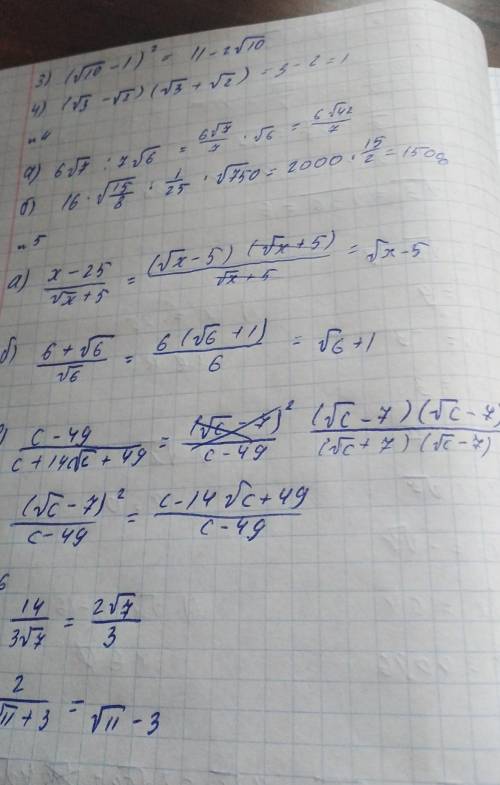 3) (√10 - 1)² = 11 - 2√10
4) (√3 - √2)(√3 + √2) = 3 - 2 = 1
n4
а) 6√7 : 7√6 = 6√7/7 · √6 = 6√42/7
б) 16 · √15/8 : 1/25 · √750 = 2000 · 15/2 = 1500
n5
а) x - 25/√x + 5 = (√x - 5)(√x + 5)/√x + 5 = √x - 5
б) 6 + √6/√6 = 6(√6 + 1)/6 = √6 + 1
) c - 49/c + 14√c + 49 = (√c - 7)²/c - 49 (√c - 7)(√c - 7)/(√c + 7)(√c - 7)
(√c - 7)²/c - 49 = c - 14√c + 49/c - 49
6
14/3√7 = 2√7/3
2/√11 + 3 = √11 - 3